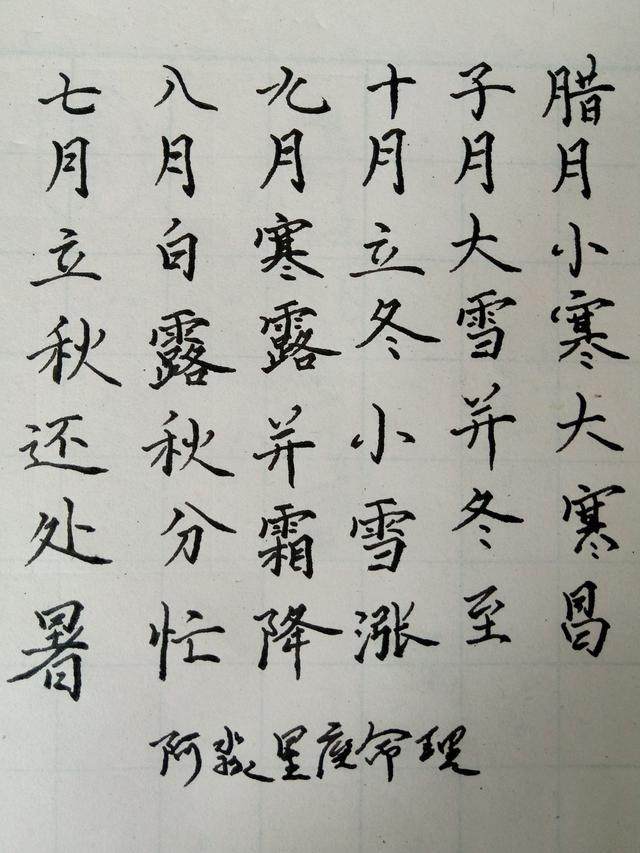 七月立秋还处暑
八月白露秋分忙
九月寒露并霜降
十月立冬小雪涨
子月大雪并冬至
腊月小寒大寒昌
阿淼星度命理